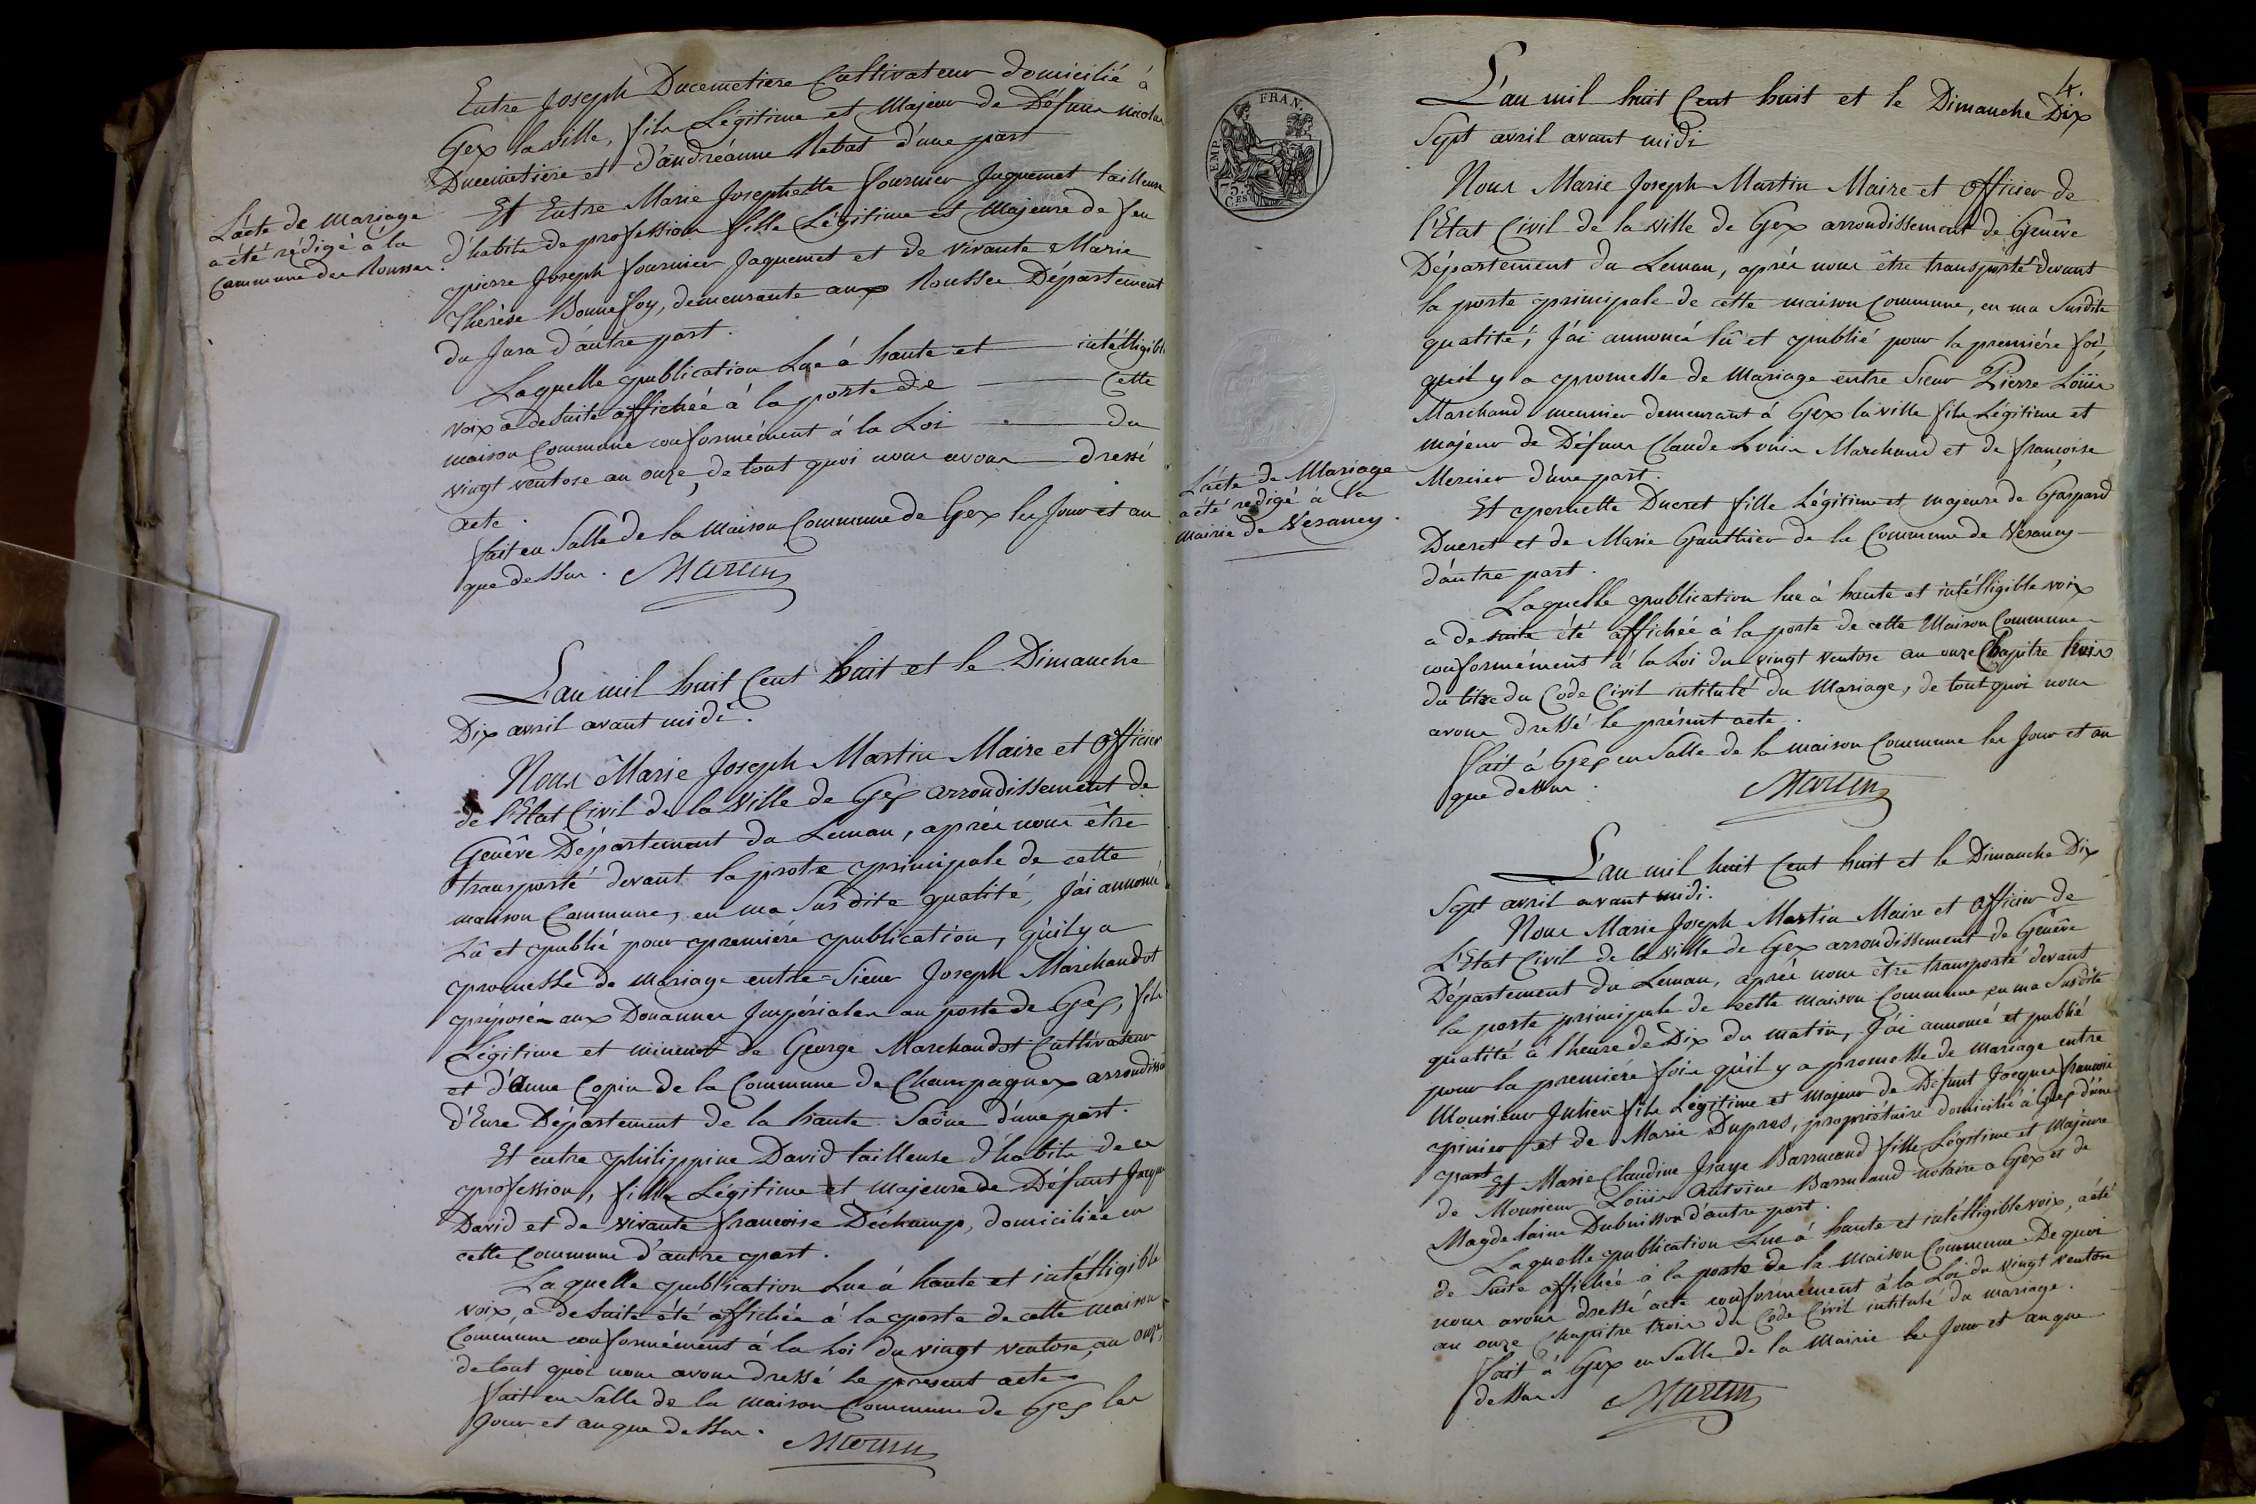 Entre Joseph Ducimetiere Cultivateur domicilié à
Gex la ville, fils Légitime et Majeur de Défunt Nicolas
Ducimetiere et d'andréanne Rebat d'une part
Et Entre Marie Josephette fournier Jaquemet tailleuse
d'habits de profession fille Légitime et Majeure de feu
pierre Joseph fournier Jaquemet et de vivante Marie
Thérèse Bonnefoy, demeurante aux Rousses Département
du Jura d'autre part.
Laquelle publication Lue à haute et intélligible
voix a desuite affichée à la porte de cette
maison Commune conformément à la Loi du
vingt ventose an onze, de tout quoi nous avons dressé
acte.
fait en Salle de la Maison Commune de Gex les Jour et an
que dessus. Martin
L'acte de Mariage
a été rédigé à la
Commune des Rousses.
L'an mil huit Cent huit et le Dimanche
Dix avril avant midi.
Nous Marie Joseph Martin Maire et officier
de l'Etat Civil de la Ville de Gex arrondissement de
Genêve Département du Leman, après nous être
transporté devant la protre principale de cette
maison Commune, en ma Sus dite qualité, J'ai annoncé
Lû et publié pour premiére publication, qu'il y a
promesse de mariage entre Sieur Joseph Marchandot
préposé aux Douannes Impériales au poste de Gex, fils
Légitime et mineur de George Marchandot Cultivateur
et d'Anne Copin de la Commune de Champagney arrondissem
d'Eure Département de la haute Saône d'une part.
Et entre philippine David tailleuse d'habits de sa
profession, fille Légitime et majeure de Défunt Jacque
David et de vivante francoise Déchamps, domiciliée en
cette Commune d'autre part.
Laquelle publication Lue à haute et intélligible
voix, a de suite été affichée à la porte de cette maison
Commune conformément à la Loi du vingt ventose, an onze,
de tout quoi nous avons dressé le present acte
fait en Salle de la maison Commune de Gex les
Jour et an que dessus. Martin
4.
EMP. FRAN.
75
Ces
L'an mil huit Cent huit et le Dimanche Dix
Sept avril avant midi
Nous Marie Joseph Martin Maire et officier de
l'Etat Civil de la ville de Gex arrondissement de Genêve
Département du Leman, après nous être transporté devant
la porte principale de cette maison Commune, en ma Susdite
qualité, J'ai annoncé lû et publié pour la premiére foi,
qu'il y a promesse de Mariage entre Sieur Pierre Loüis
Marchand meunier demeurant à Gex la ville fils Légitime et
majeur de Défunt Claude Louis Marchand et de françoise
Mercier d'une part.
Et pernette Ducret fille Légitime et majeure de Gaspard
Ducret et de Marie Gauthier de la Commune de Vesancy
d'autre part.
Laquelle publication lue à haute et intélligible voix
a de suite été affichée à la porte de cette Maison Commune
conformément à la Loi du vingt ventose an onze Chapitre trois
du titre du Code Civil intitulé du Mariage, de tout quoi nous
avons dressé le présent acte.
fait à Gex en Salle de la maison Commune les Jour et an
que dessus. Martin
L'acte de Mariage
a été redigé à la
Mairie de Vesancy.
L'an mil huit Cent huit et le Dimanche Dix
Sept avril avant midi.
Nous Marie Joseph Martin Maire et officier de
L'Etat Civil de la ville de Gex arrondissement de Genêve
Département du Leman, après nous être transporté devant
la porte principale de cette maison Commune en ma Susdite
qualité à l'heure de Dix du matin, J'ai annoncé et publié
pour la premiére fois qu'il y a promesse de mariage entre
Monsieur Julien fils Légitime et Majeur de Défunt Jacques francois
pinier et de Marie Dupras, propriétaire domicilié à Gex d'une
part Et Marie Claudine Isaye Barrucand fille Légitime et Majeure
de Monsieur Loüis Antoine Barrucand notaire a Gex et de
Magdelaine Dubuisson d'autre part.
Laquelle publication Lue à haute et intélligible voix, a été
de Suite affichée à la porte de la Maison Commune. De quoi
nous avons dressé acte conformément à la Loi du vingt ventose
an onze Chapitre trois du Code Civil intitulé du mariage.
fait à Gex en Salle de la Mairie les Jour et an que
dessus Martin